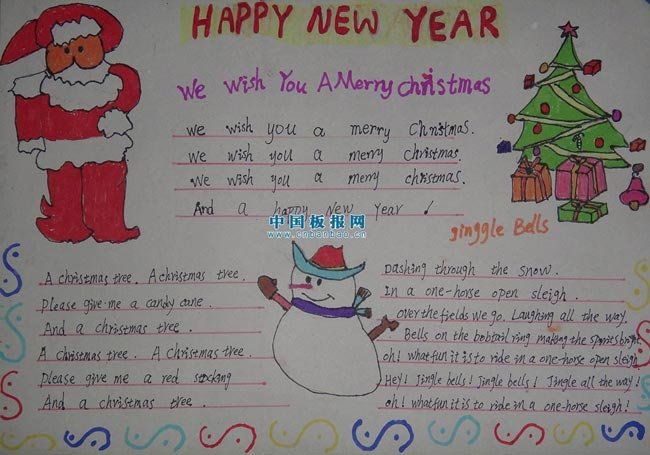 HAPPY NEW YEAR
We Wish You A Merry Christmas
We wish you a merry Christmas.
We wish you a merry Christmas.
We wish you a merry Christmas.
And a happy New Year !
中国板报网
www.cnbanbao.cn
ginggle Bells
A christmas tree. A christmas tree.
Please give me a candy cane.
And a christmas tree.
A christmas tree. A christmas tree.
Please give me a red stocking
And a christmas tree.
Dashing through the snow.
In a one-horse open sleigh.
over the fields we go. Laughing all the way.
Bells on the bobtail ring making the spirits bright
oh! what fun it is to ride in a one-horse open sleigh
Hey! Jingle bells! Jingle bells! Jingle all the way!
oh! what fun it is to ride in a one-horse sleigh!